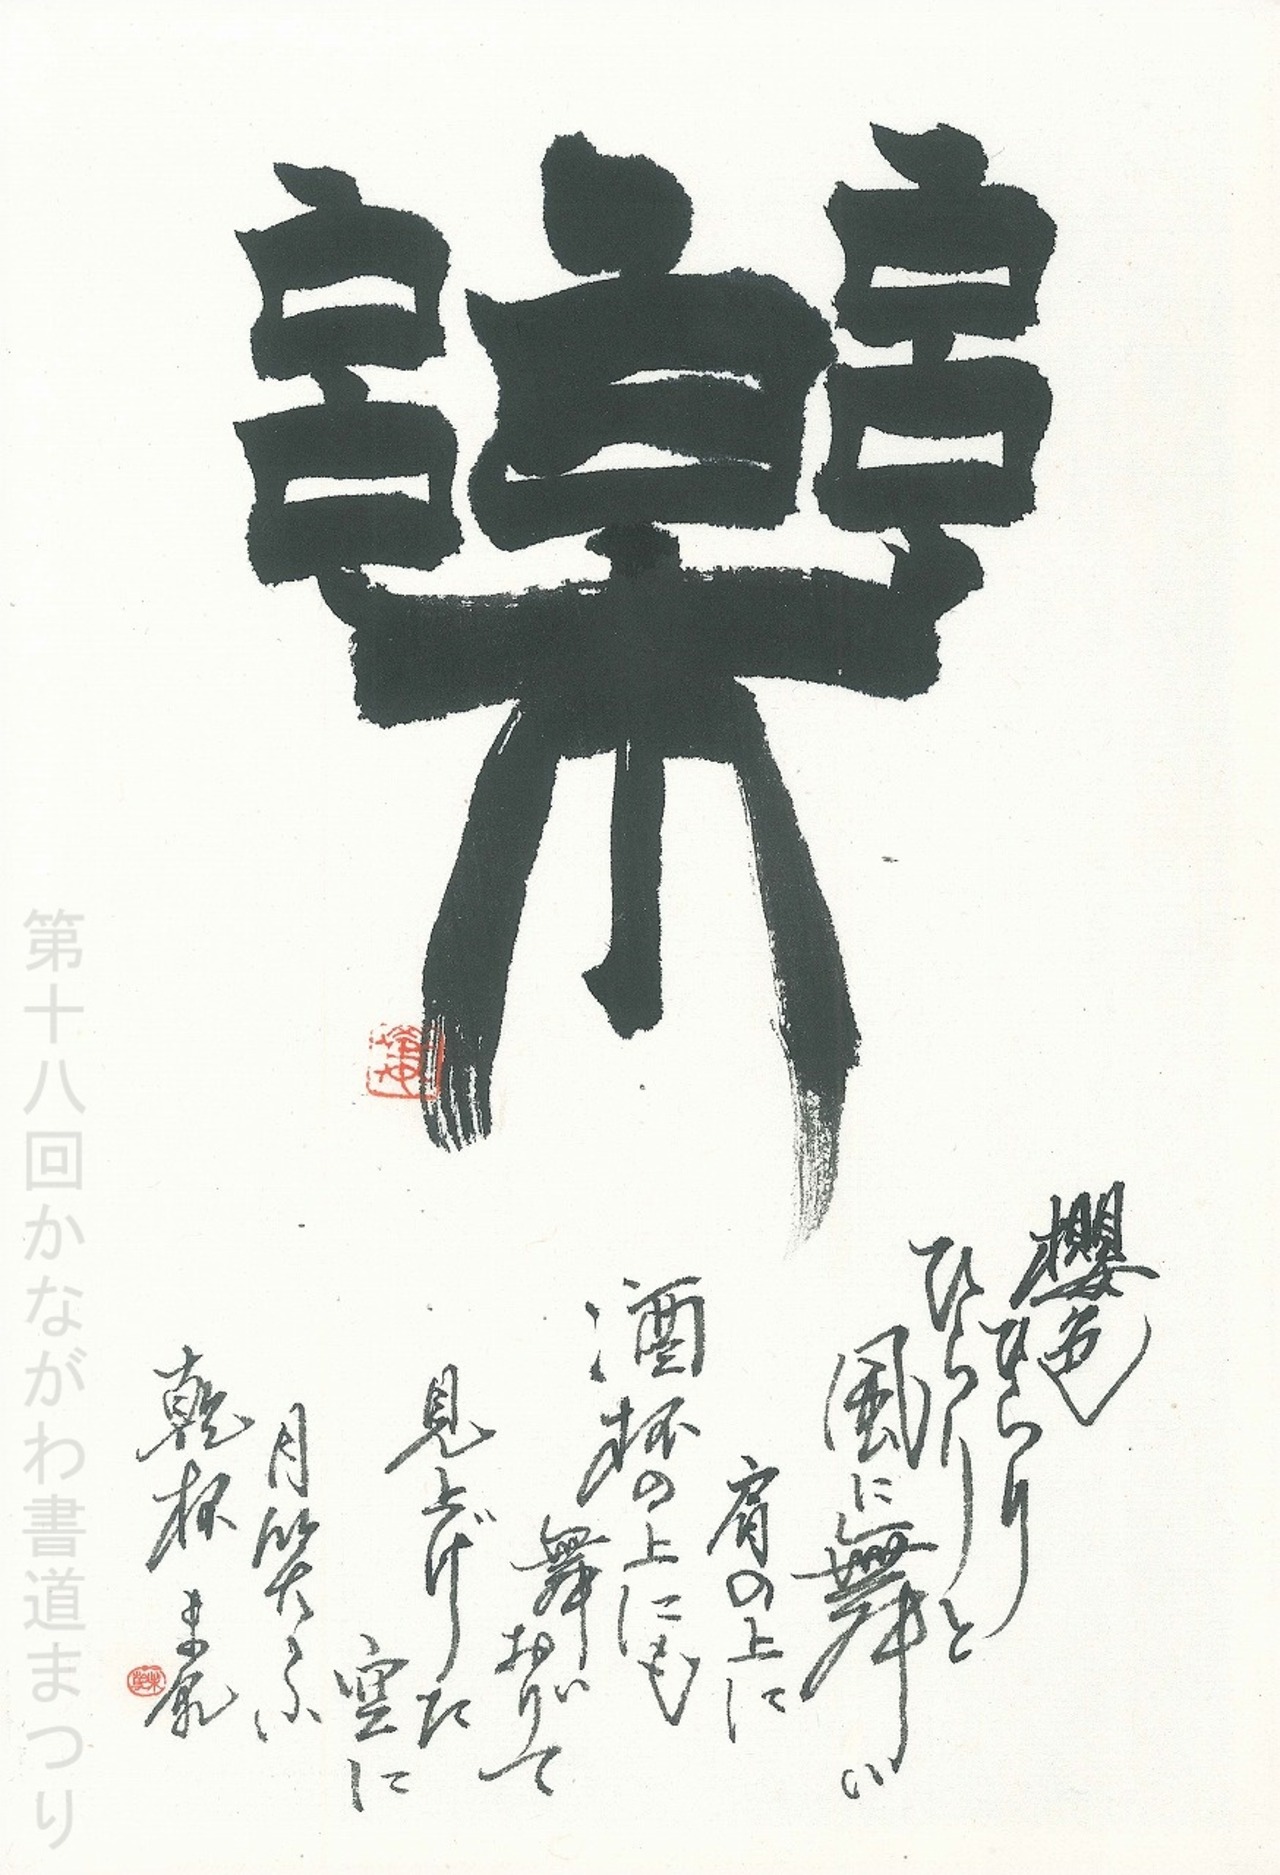 樂
櫻色
ひらり
ひらりと
風に舞い
肩の上に
酒杯の上にも
舞い
おりて
見上げた
空に
月笑ふ
乾杯
第十八回かながわ書道まつり